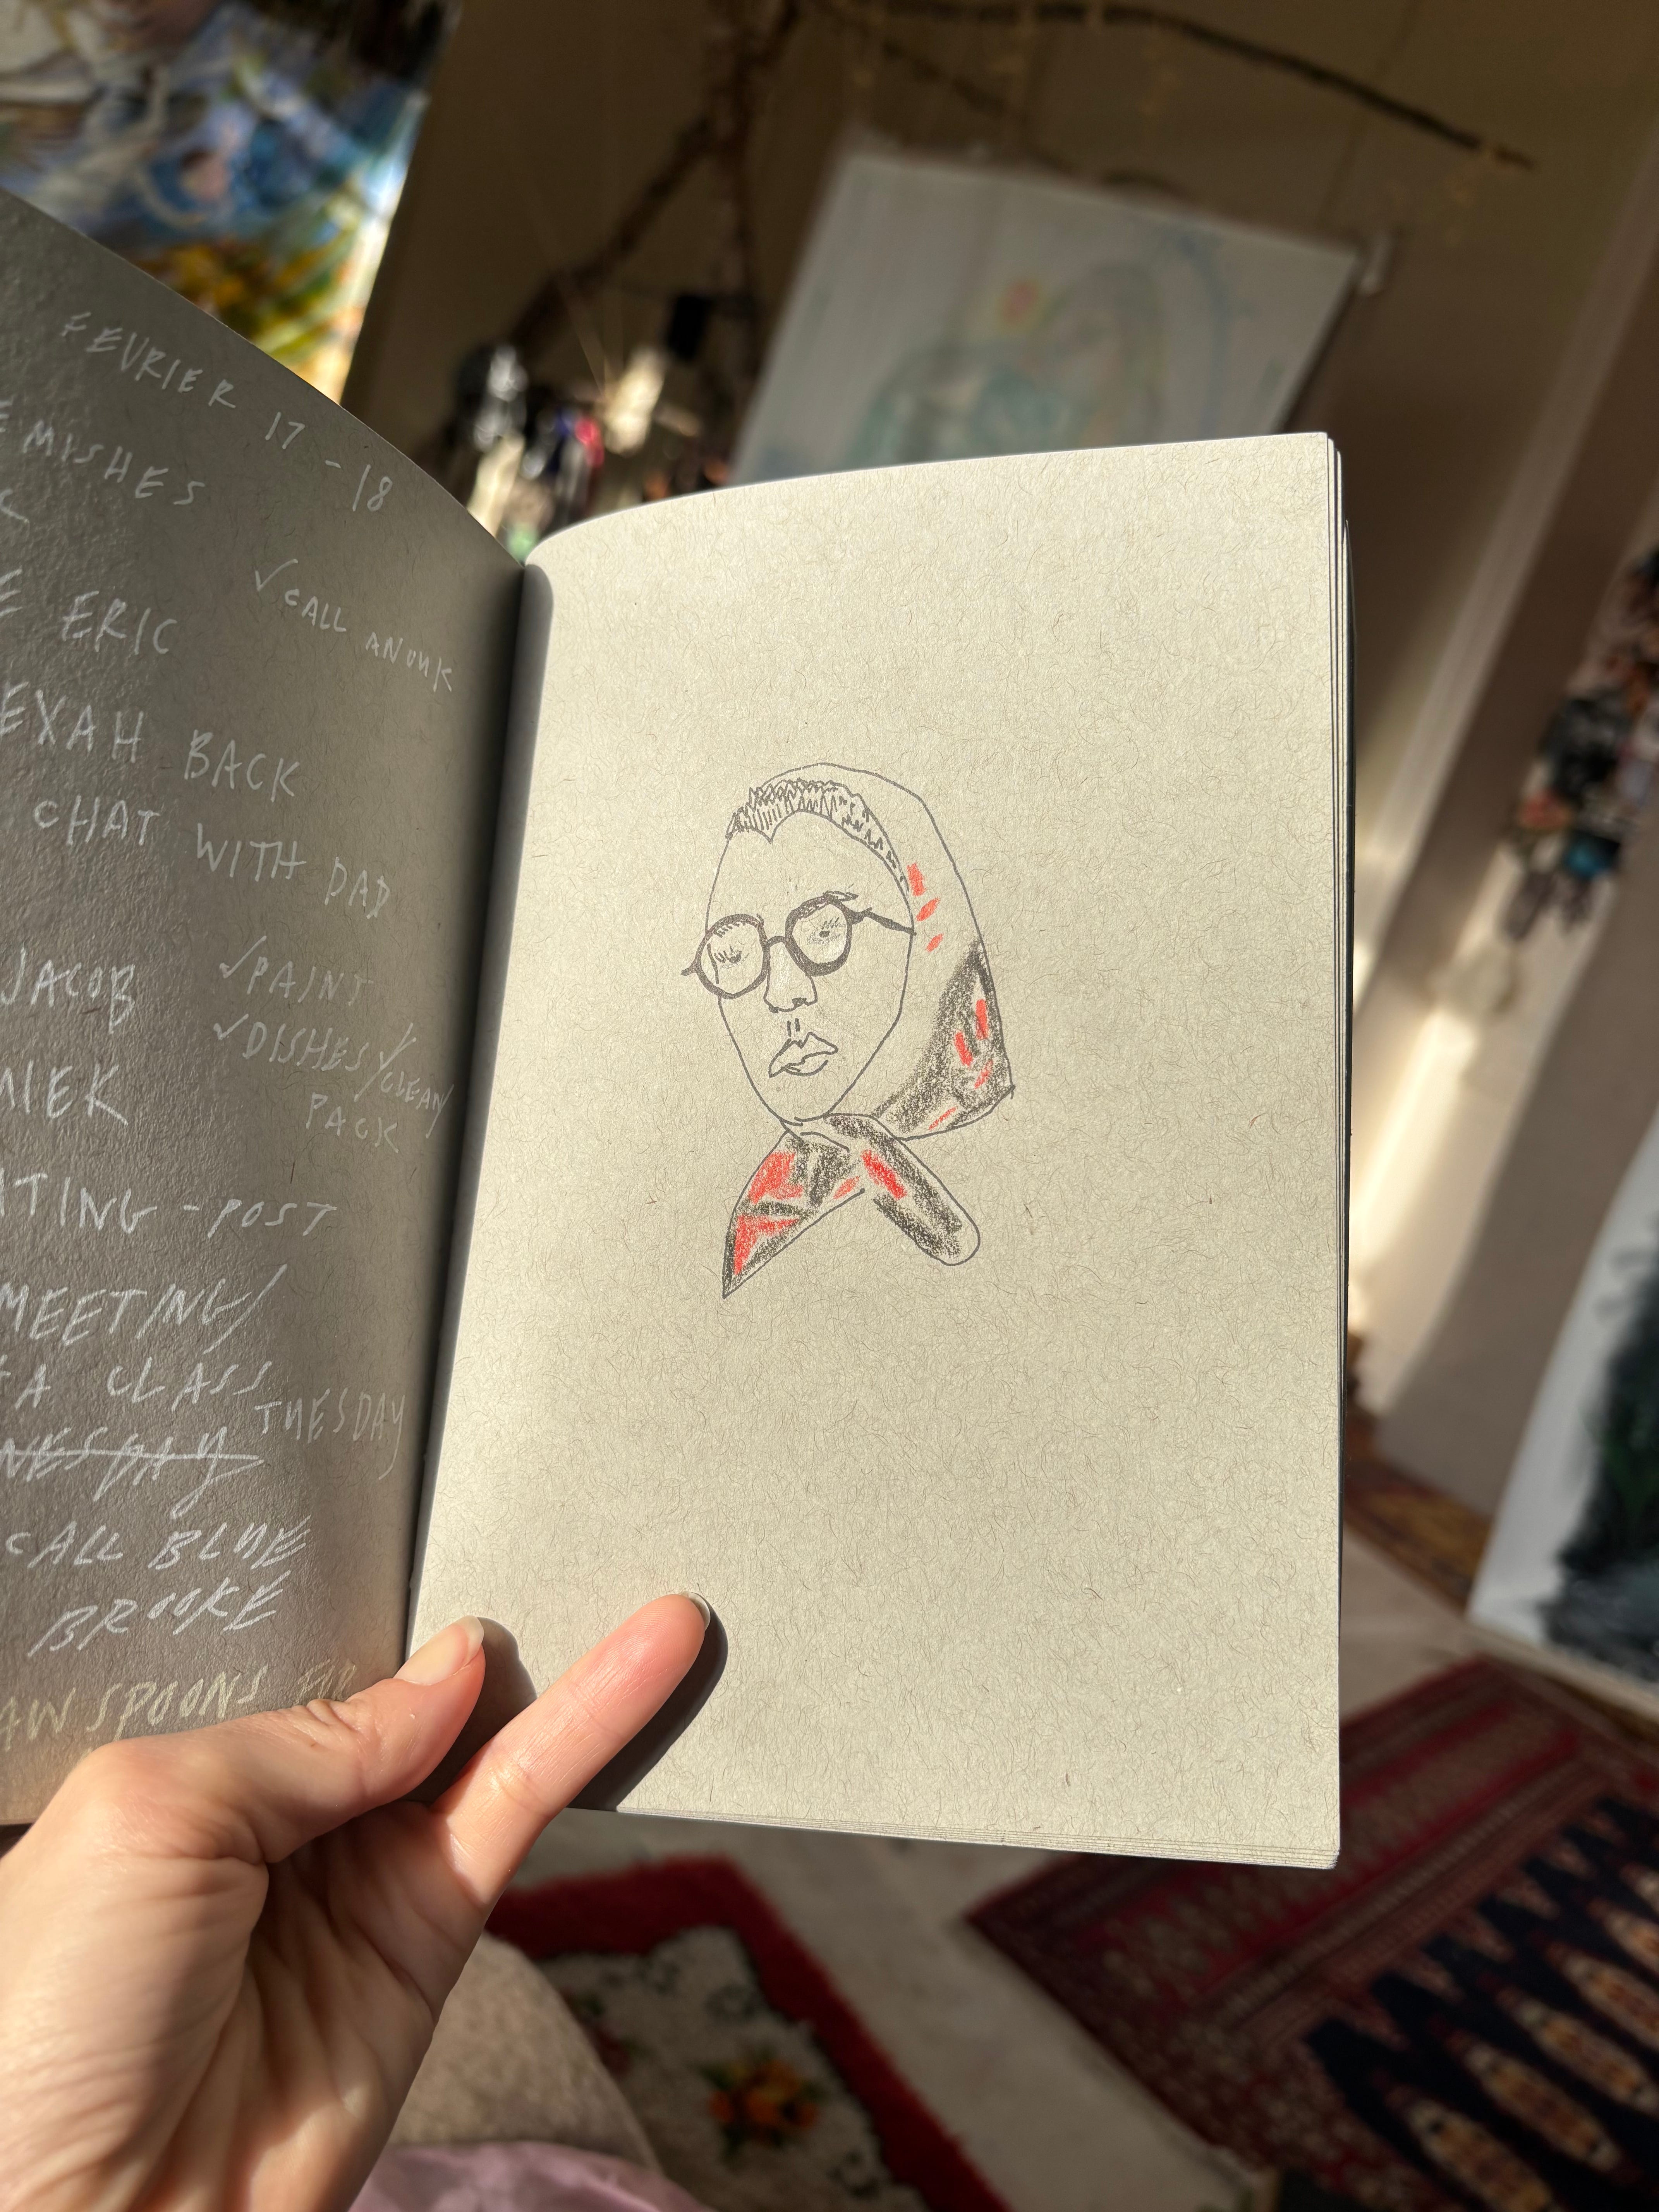 FEVRIER 17-18
MISHES
✓CALL ANOUK
ERIC
BACK
CHAT WITH DAD
JACOB
✓PAINT
✓DISHES/CLEAN
PACK
-POST
MEETING/
A CLASS
TUESDAY
CALL BLUE
BROOKE
SPOONS